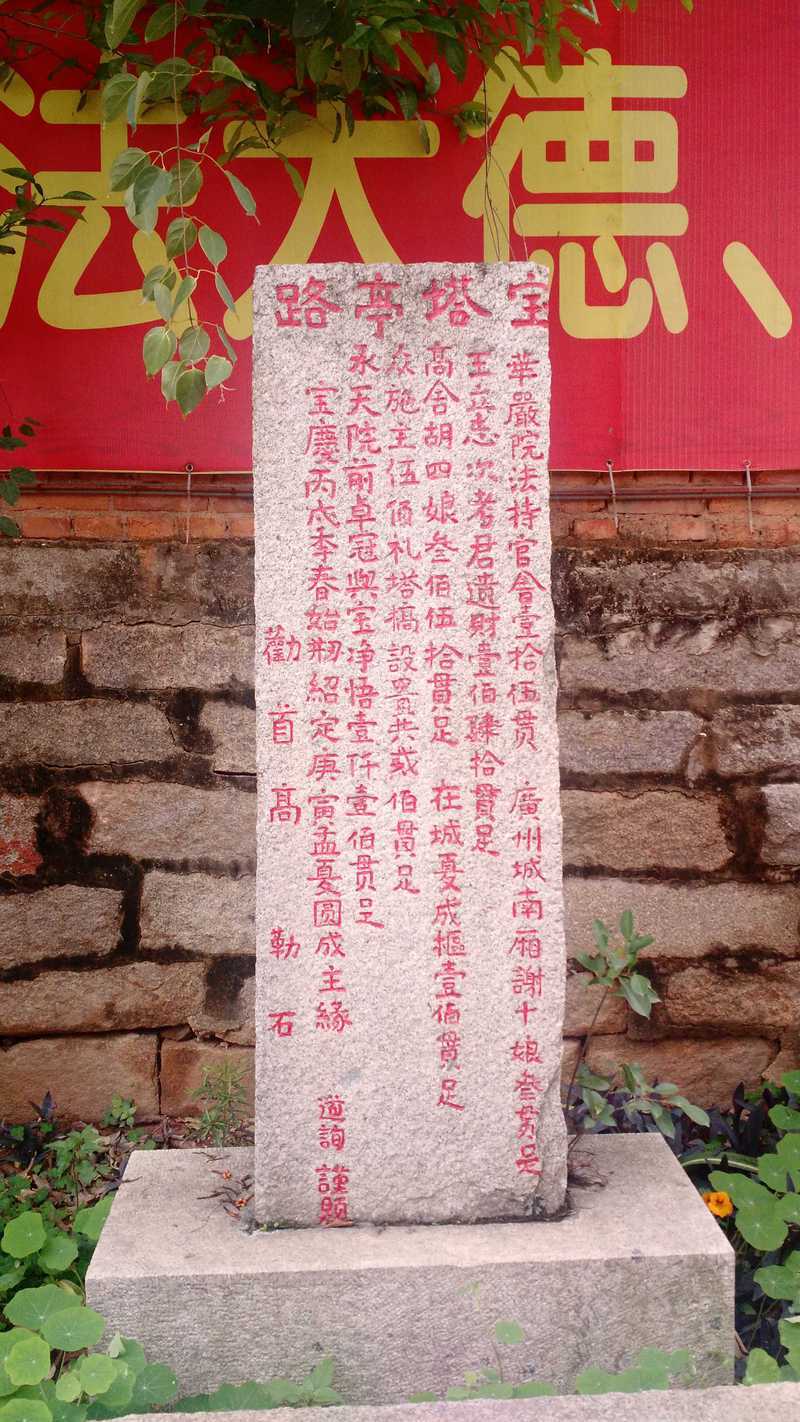 法大德、
宝塔亭路
華嚴院法持官會壹拾伍贯 廣州城南厢謝十娘叁贯足
王立志次考君遗财壹伯肆拾貫足
高舍胡四娘叁佰伍拾貫足 在城夏成樞壹佰貫足
众施主伍佰札塔橋設貴共或佰貫足
永天院前卓冠與宝净悟壹仟壹佰贯足
宝慶丙戍季春始刱紹定庚寅孟夏圆成主緣 遒詢謹题
勸首高 勒石